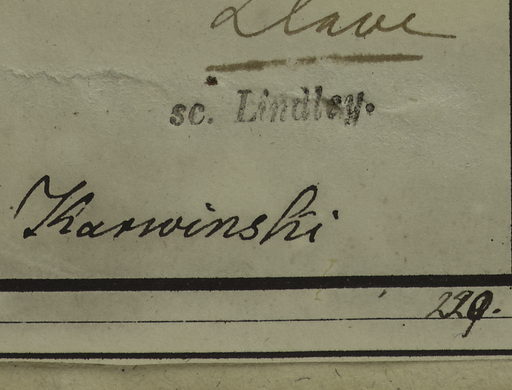 Llave
sc. Lindley.
Karwinski
229.